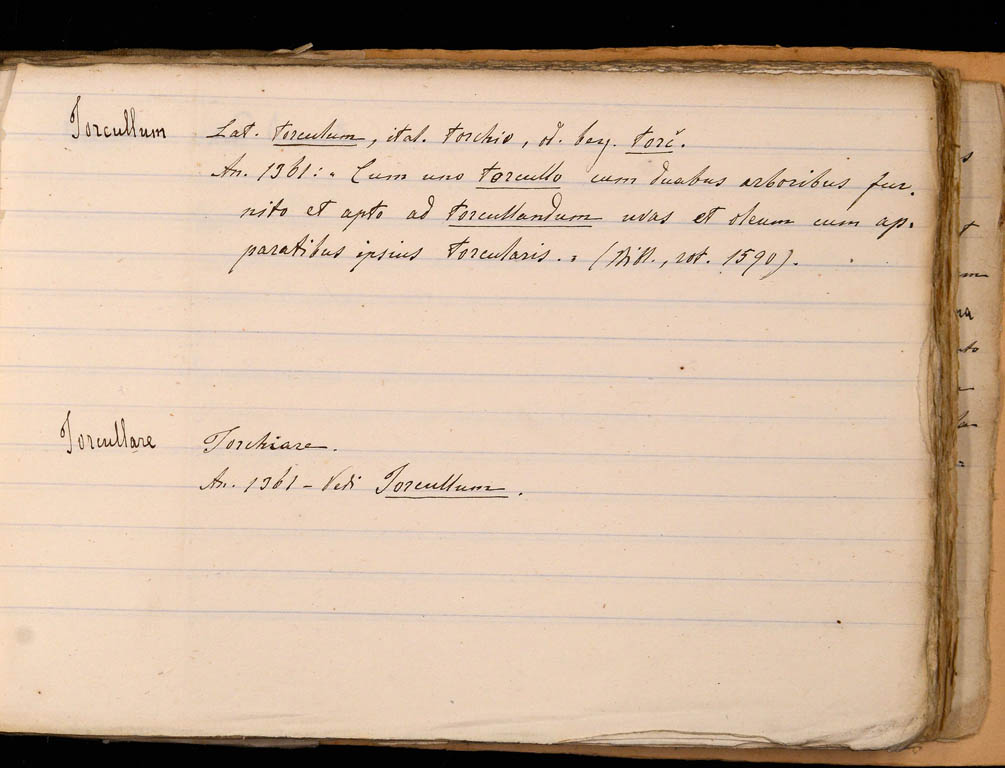 Torcullum Lat. torculum, ital. torchio, od. berg. torč.
An. 1361: "Cum uno torcullo cum duabus arboribus fur-
nito et apto ad torcullandum uvas et oleum cum ap-
paratibus ipsius torcularis." (Bibl., rot. 1590).
Torcullare Torchiare.
An. 1361 - Vedi Torcullum.